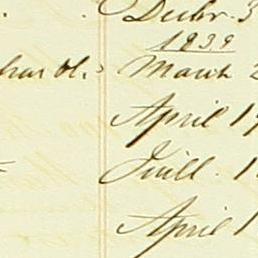 Decbr. 3
1839
March 2
April 19
Juill. 1
April 1